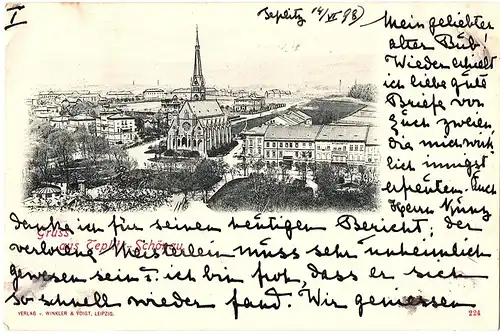 I
Teplitz 14/VI 98)
Mein geliebter
alter Bub!
Wieder erhielt
ich liebe gute
Briefe von
Euch zweien,
die mich wirk
lich innigst
erfreuten. Auch
Herrn Kunz
danke ich für seinen heutigen Bericht; der
verlorene Meisterlen muss sehr unheimlich
gewesen sein u. ich bin froh, dass er sich
so schnell wieder fand. Wir geniessen
Gruss
aus Teplitz-Schönau
VERLAG v. WINKLER & VOIGT, LEIPZIG.
224